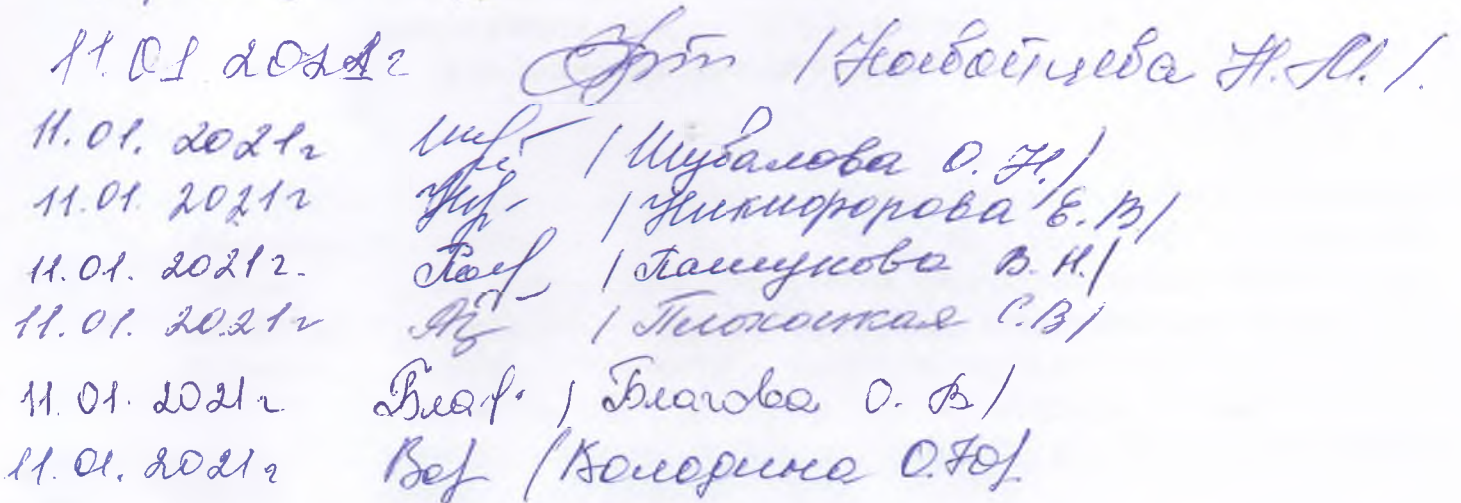 11.01 2021г /Новойтцева Н.М./.
11.01. 2021г /Шубалова О.Н./
11.01. 2021г /Никифорова Е.В/
11.01. 2021г. /Пашукова В.Н./
11.01. 2021г / С.В/
11.01. 2021г Благ. / Благова О.В/
11.01. 2021г Вол /Володина О.Ю/